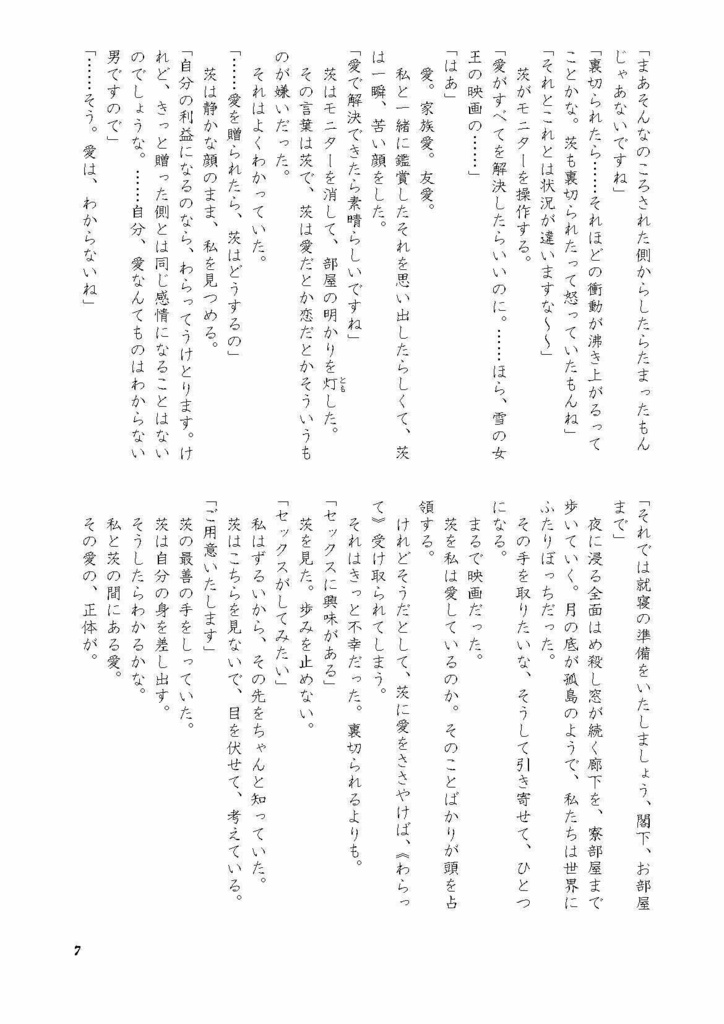 「まあそんなのころされた側からしたらたまったもん
じゃあないですね」
「裏切られたら……それほどの衝動が沸き上がるって
ことかな。茨も裏切られたって怒っていたもんね」
「それとこれとは状況が違いますな〜〜」
　茨がモニターを操作する。
「愛がすべてを解決したらいいのに。……ほら、雪の女
王の映画の……」
「はあ」
　愛。家族愛。友愛。
　私と一緒に鑑賞したそれを思い出したらしくて、茨
は一瞬、苦い顔をした。
「愛で解決できたら素晴らしいですね」
　茨はモニターを消して、部屋の明かりを灯した。
とも
　その言葉は茨で、茨は愛だとか恋だとかそういうも
のが嫌いだった。
　それはよくわかっていた。
「……愛を贈られたら、茨はどうするの」
　茨は静かな顔のまま、私を見つめる。
「自分の利益になるのなら、わらってうけとります。け
れど、きっと贈った側とは同じ感情になることはない
のでしょうな。……自分、愛なんてものはわからない
男ですので」
「……そう。愛は、わからないね」
「それでは就寝の準備をいたしましょう、閣下、お部屋
まで」
　夜に浸る全面はめ殺し窓が続く廊下を、寮部屋まで
歩いていく。月の底が孤島のようで、私たちは世界に
ふたりぼっちだった。
　その手を取りたいな、そうして引き寄せて、ひとつ
になる。
　まるで映画だった。
　茨を私は愛しているのか。そのことばかりが頭を占
領する。
　けれどそうだとして、茨に愛をささやけば、《わらっ
て》受け取られてしまう。
　それはきっと不幸だった。裏切られるよりも。
「セックスに興味がある」
　茨を見た。歩みを止めない。
「セックスがしてみたい」
　私はずるいから、その先をちゃんと知っていた。
　茨はこちらを見ないで、目を伏せて、考えている。
「ご用意いたします」
　茨の最善の手をしっていた。
　茨は自分の身を差し出す。
　そうしたらわかるかな。
　私と茨の間にある愛。
　その愛の、正体が。
7